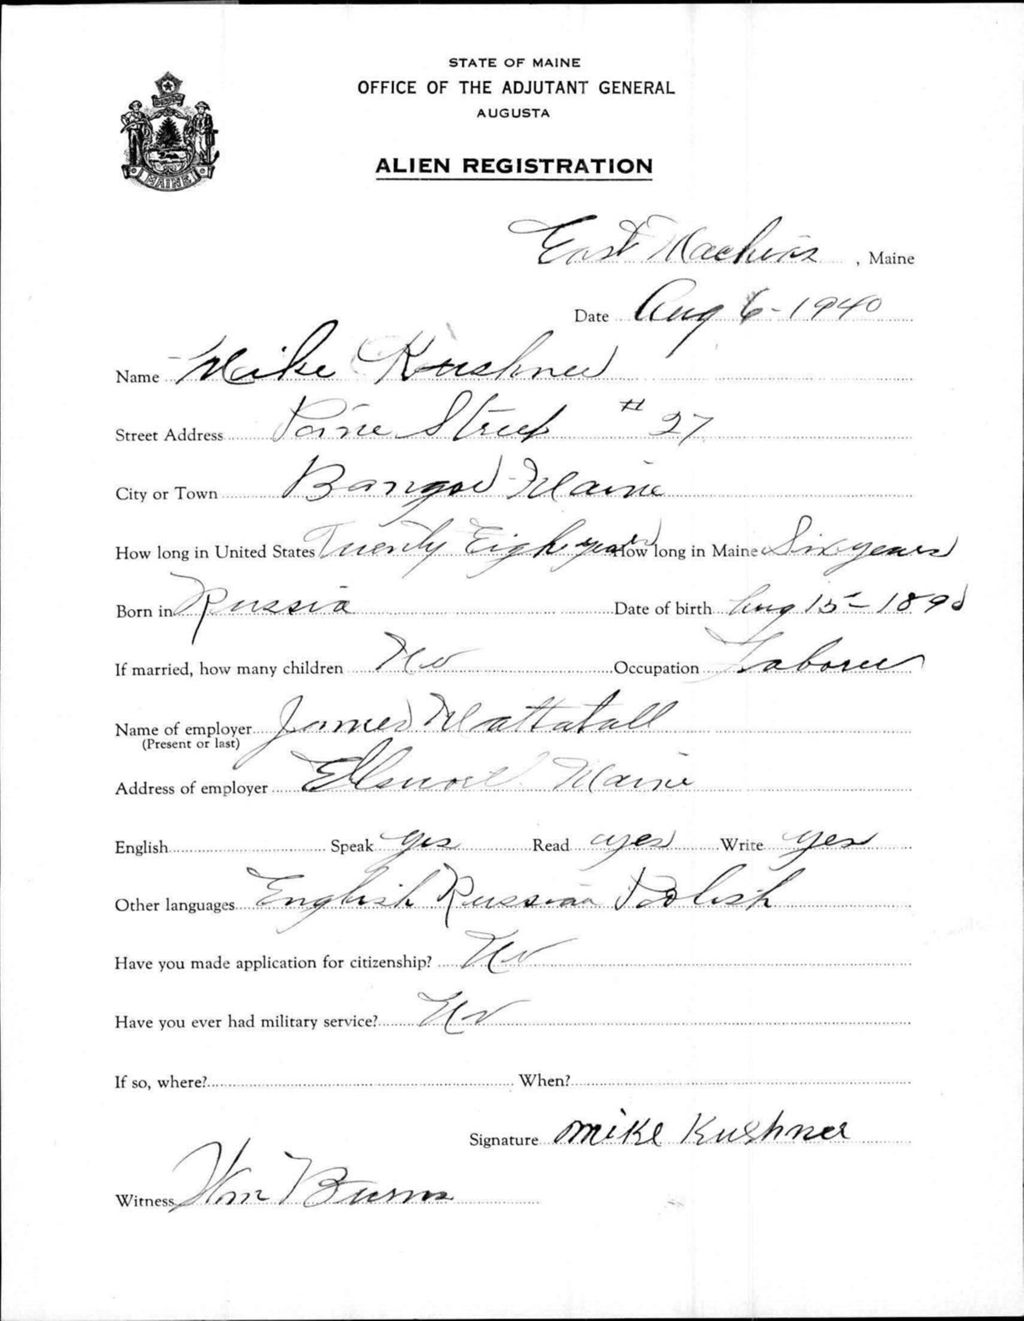 STATE OF MAINE
OFFICE OF THE ADJUTANT GENERAL
AUGUSTA
MAINE
ALIEN REGISTRATION
East Machias, Maine
Date Aug 6-1940
Name Mike Kushner
Street Address Pine Street # 27
City or Town Bangor Maine
How long in United States Twenty Eight years How long in Maine Six years
Born in Russia Date of birth Aug 15-
If married, how many children No Occupation Laborer
Name of employer James Mattatall
(Present or last)
Address of employer Maine
English Speak yes Read yes Write yes
Other languages English Russian Polish
Have you made application for citizenship? No
Have you ever had military service? No
If so, where? When?
Signature Mike Kushner
Witness Wm Burns